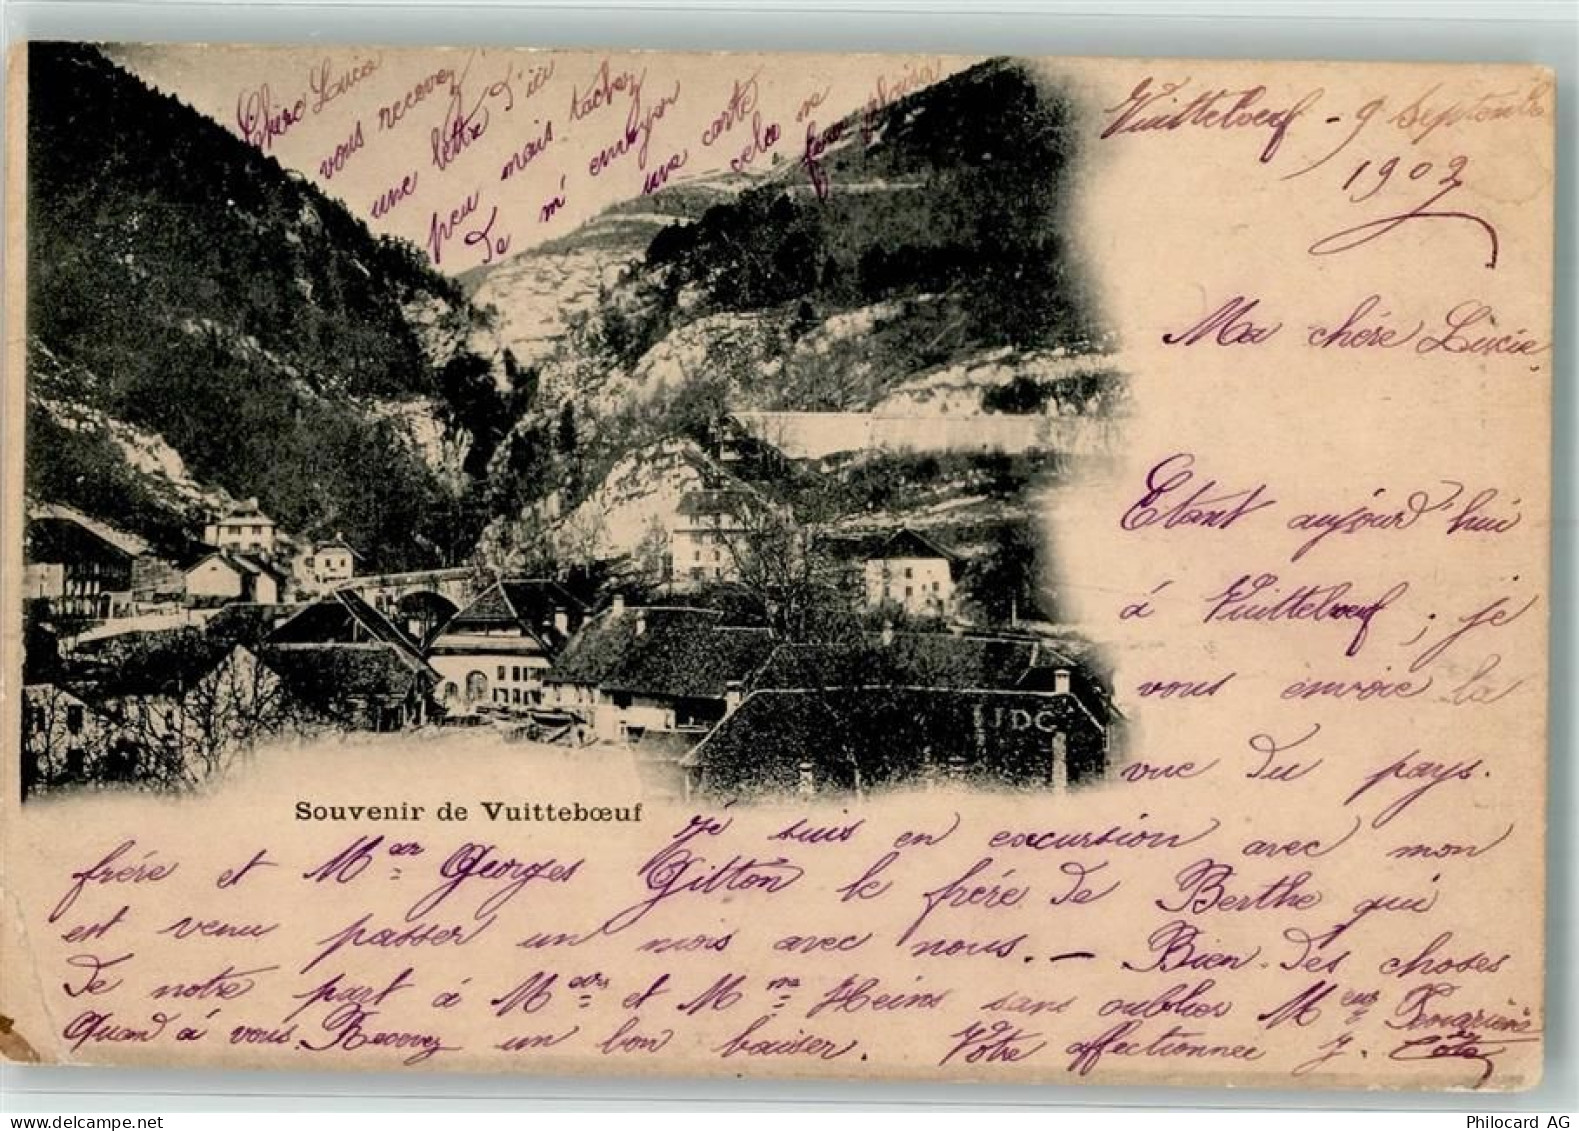 Vuitteboeuf - 9 Septembre
1902
Ma chère Lucie,
Etant aujourd'hui
à Vuitteboeuf ; je
vous envoie la
vue du pays.
Je suis en excursion avec mon
frère et Mr Georges Gitton le frère de Berthe qui
est venu passer un mois avec nous. — Bien des choses
de notre part à M et Mme Heins sans oublier M
Quand à vous. Recevez un bon baiser. Votre affectionnée J.
Chère Lucie
vous recevez
une lettre d'ici
peu mais tachez
de m'envoyer
une carte
cela me
fera plaisir
JDC
Souvenir de Vuittebœuf
Philocard AG